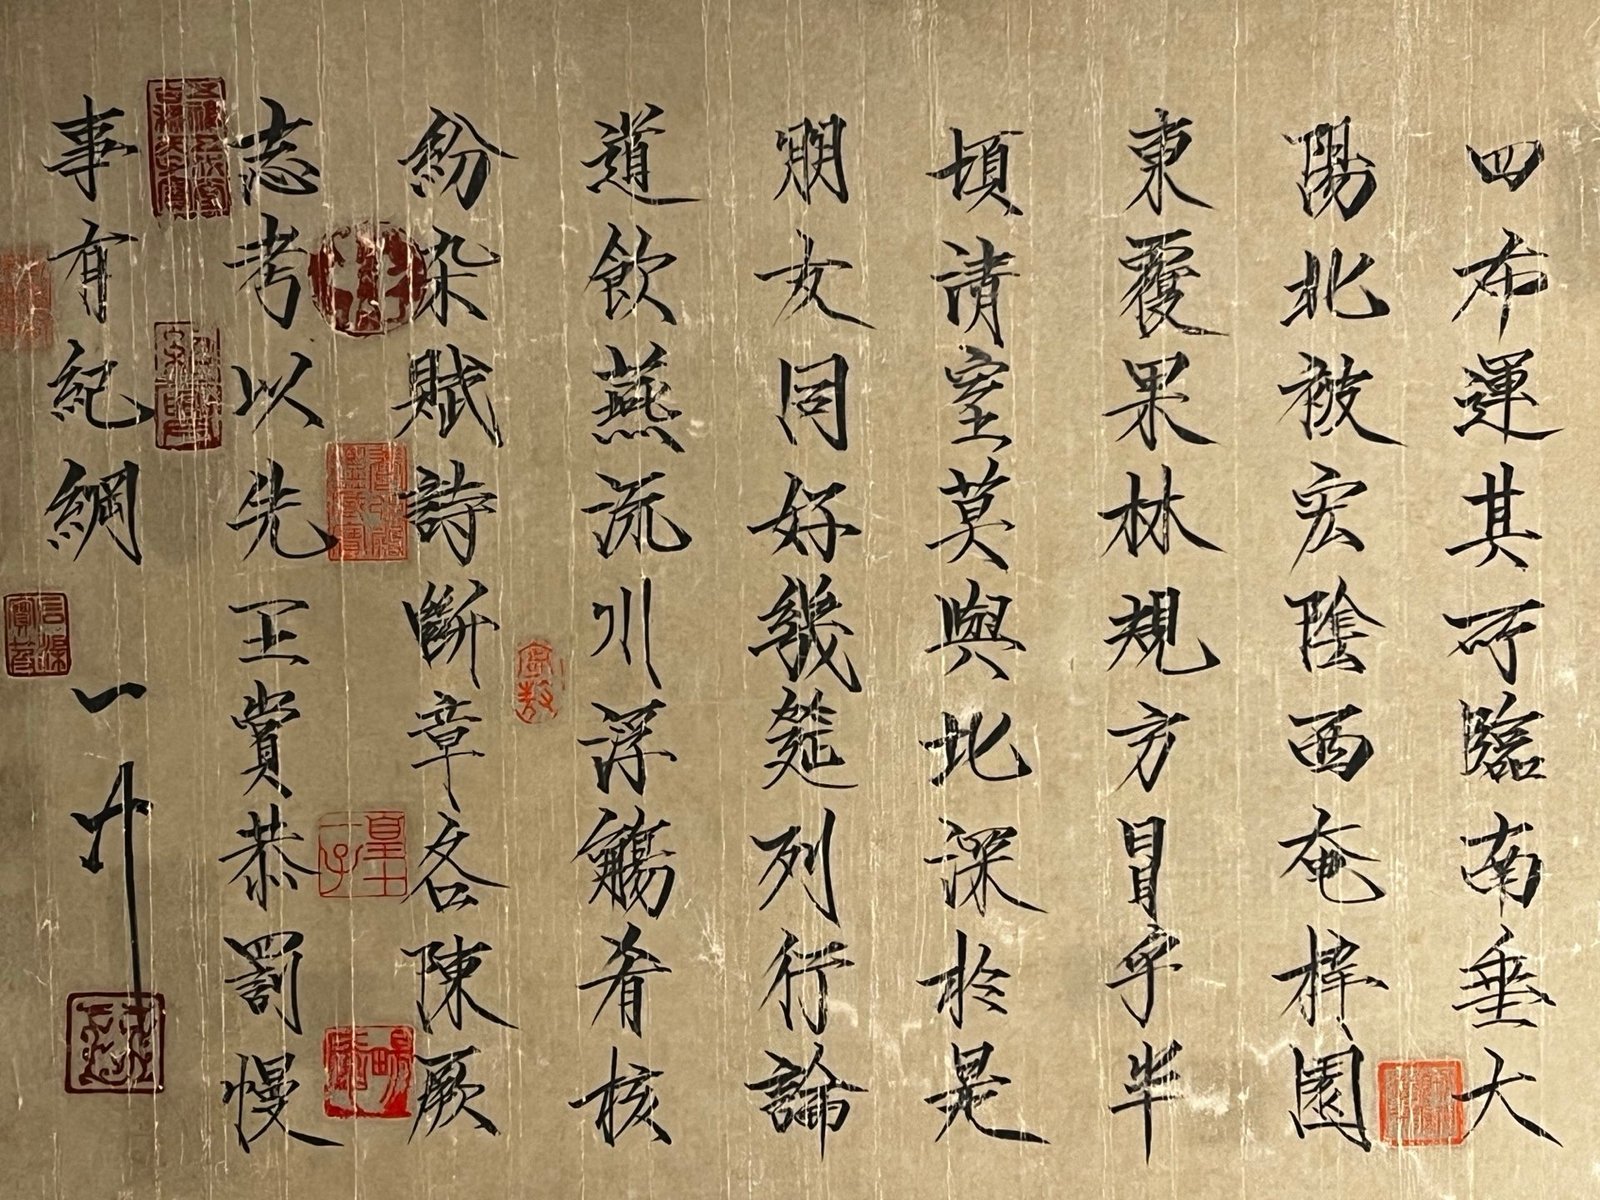 四布運其所臨南垂大
陽北被宏陰西奄梓園
東覆果林規方冒乎半
頃清室莫與比深於是
朋友同好幾筵列行論
道飲燕流川浮觴肴核
紛杂賦詩斷章各陳厥
志考以先王賞恭罰慢
事有紀綱